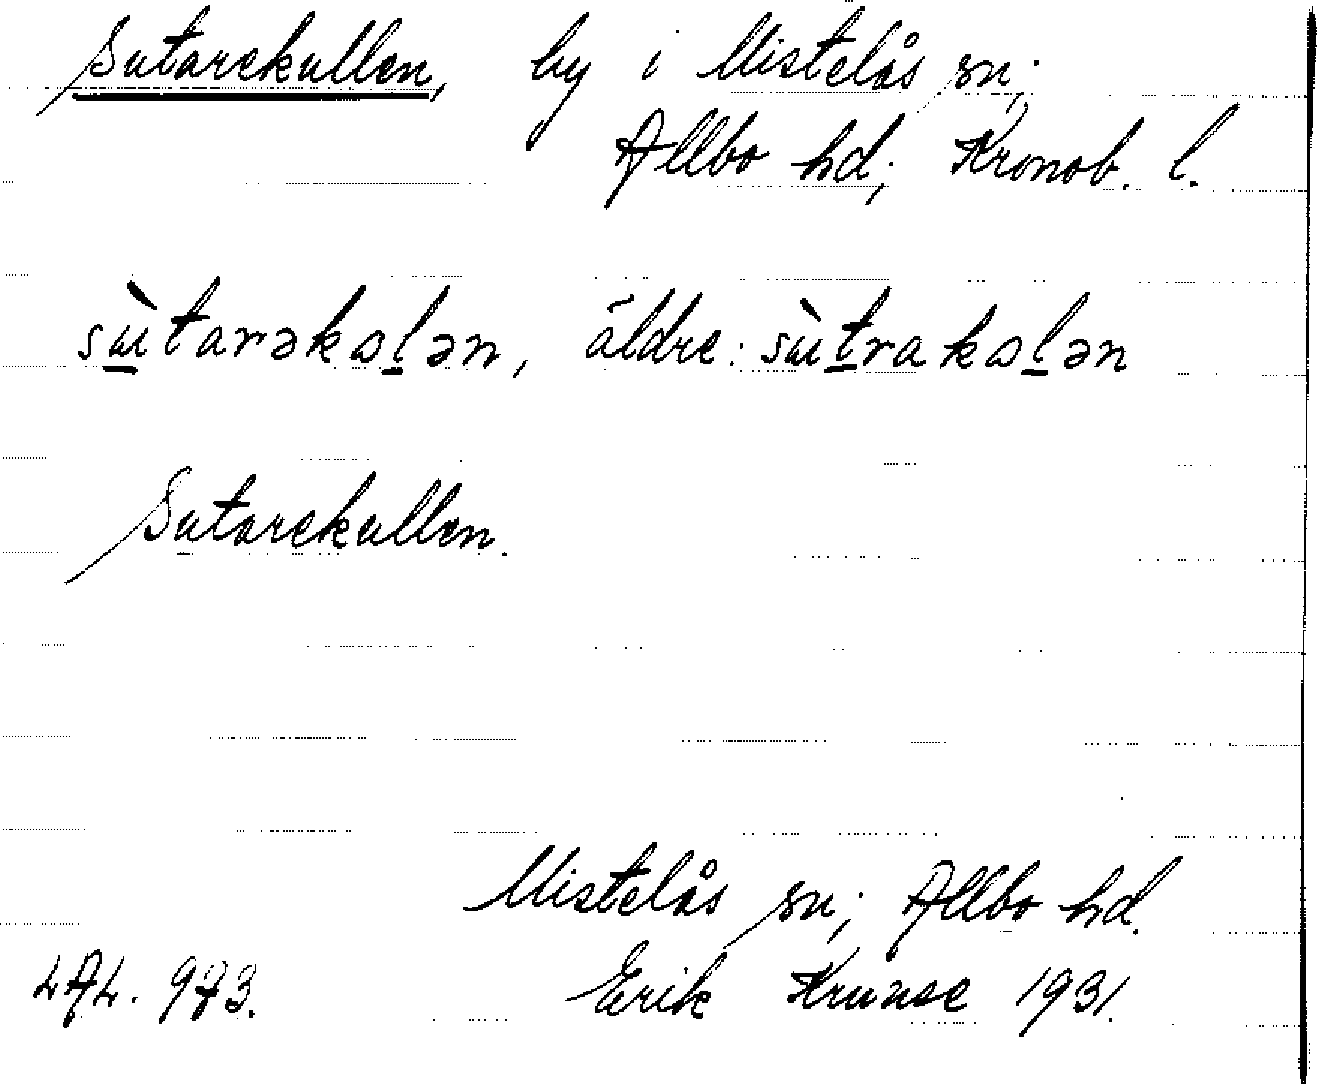 Sutarekullen, by i Mistelås sn;
Allbo hd; Kronob. l.
sùtarəkoḻən, äldre: sùṯrakoḻən
Sutarekullen.
Mistelås sn; Allbo hd.
LAL. 973. Erik Krunse 1931.